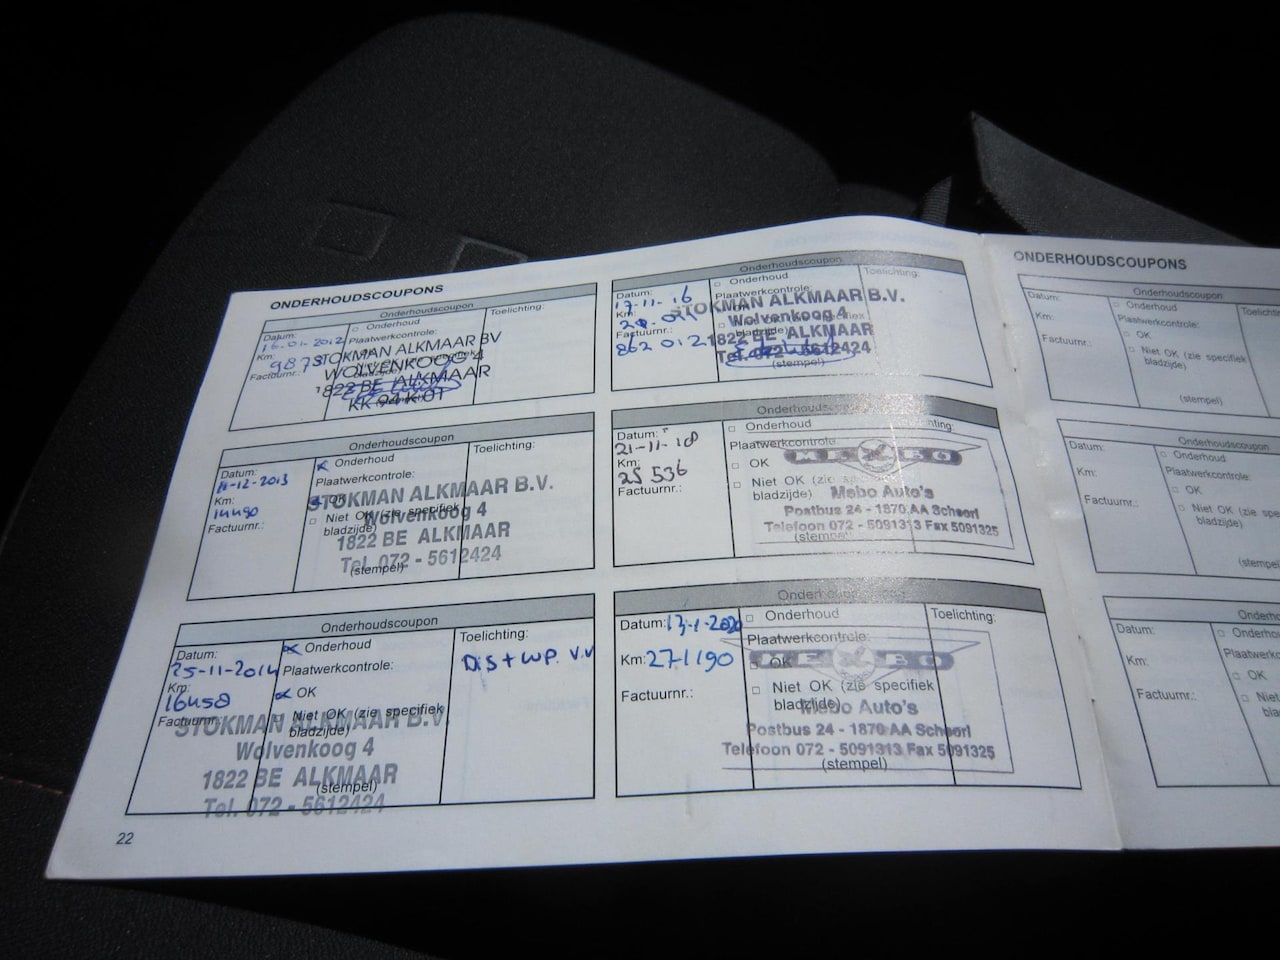 ONDERHOUDSCOUPONS
Onderhoudscoupon
Datum: 16.01.2012
Km: 9873
Factuurnr.:
□ Onderhoud
Plaatwerkcontrole:
Toelichting:
STOKMAN ALKMAAR BV
WOLVENKOOG 4
1822 BE ALKMAAR
KK 94 K 01
Onderhoudscoupon
Datum: 11-12-2013
Km: 14490
Factuurnr.:
Onderhoud
Plaatwerkcontrole:
OK
□ Niet OK (zie specifiek bladzijde)
(stempel)
Toelichting:
STOKMAN ALKMAAR B.V.
Wolvenkoog 4
1822 BE ALKMAAR
Tel. 072 - 5612424
Onderhoudscoupon
Datum: 25-11-2014
Km: 16458
Factuurnr.:
Onderhoud
Plaatwerkcontrole:
OK
□ Niet OK (zie specifiek bladzijde)
(stempel)
Toelichting:
Dis + WP. V.V
STOKMAN ALKMAAR B.V.
Wolvenkoog 4
1822 BE ALKMAAR
Tel. 072 - 5612424
22
Onderhoudscoupon
Datum: 17-11-16
Km:
Factuurnr.:
862012
□ Onderhoud
Plaatwerkcontrole:
(stempel)
Toelichting:
STOKMAN ALKMAAR B.V.
Wolvenkoog 4
1822 BE ALKMAAR
Tel. 072 - 5612424
Onderhoudscoupon
Datum: 21-11-18
Km: 25 536
Factuurnr.:
□ Onderhoud
Plaatwerkcontrole
□ OK
□ Niet OK (zie specifiek bladzijde)
(stempel)
MEBO
Mebo Auto's
Postbus 24 - 1870 AA Schoorl
Telefoon 072 - 5091313 Fax 5091325
Onderhoudscoupon
Datum: 13-1-2020
Km: 27190
Factuurnr.:
□ Onderhoud
Plaatwerkcontrole:
OK
□ Niet OK (zie specifiek bladzijde)
(stempel)
Toelichting:
MEBO
Mebo Auto's
Postbus 24 - 1870 AA Schoorl
Telefoon 072 - 5091313 Fax 5091325
ONDERHOUDSCOUPONS
Onderhoudscoupon
Datum:
Km:
Factuurnr.:
□ Onderhoud
Plaatwerkcontrole:
□ OK
□ Niet OK (zie specifiek bladzijde)
(stempel)
Onderhoudscoupon
Datum:
Km:
Factuurnr.:
□ Onderhoud
Plaatwerkcontrole:
□ OK
□ Niet OK (zie specifiek bladzijde)
Datum:
Km:
Factuurnr.:
□ OK